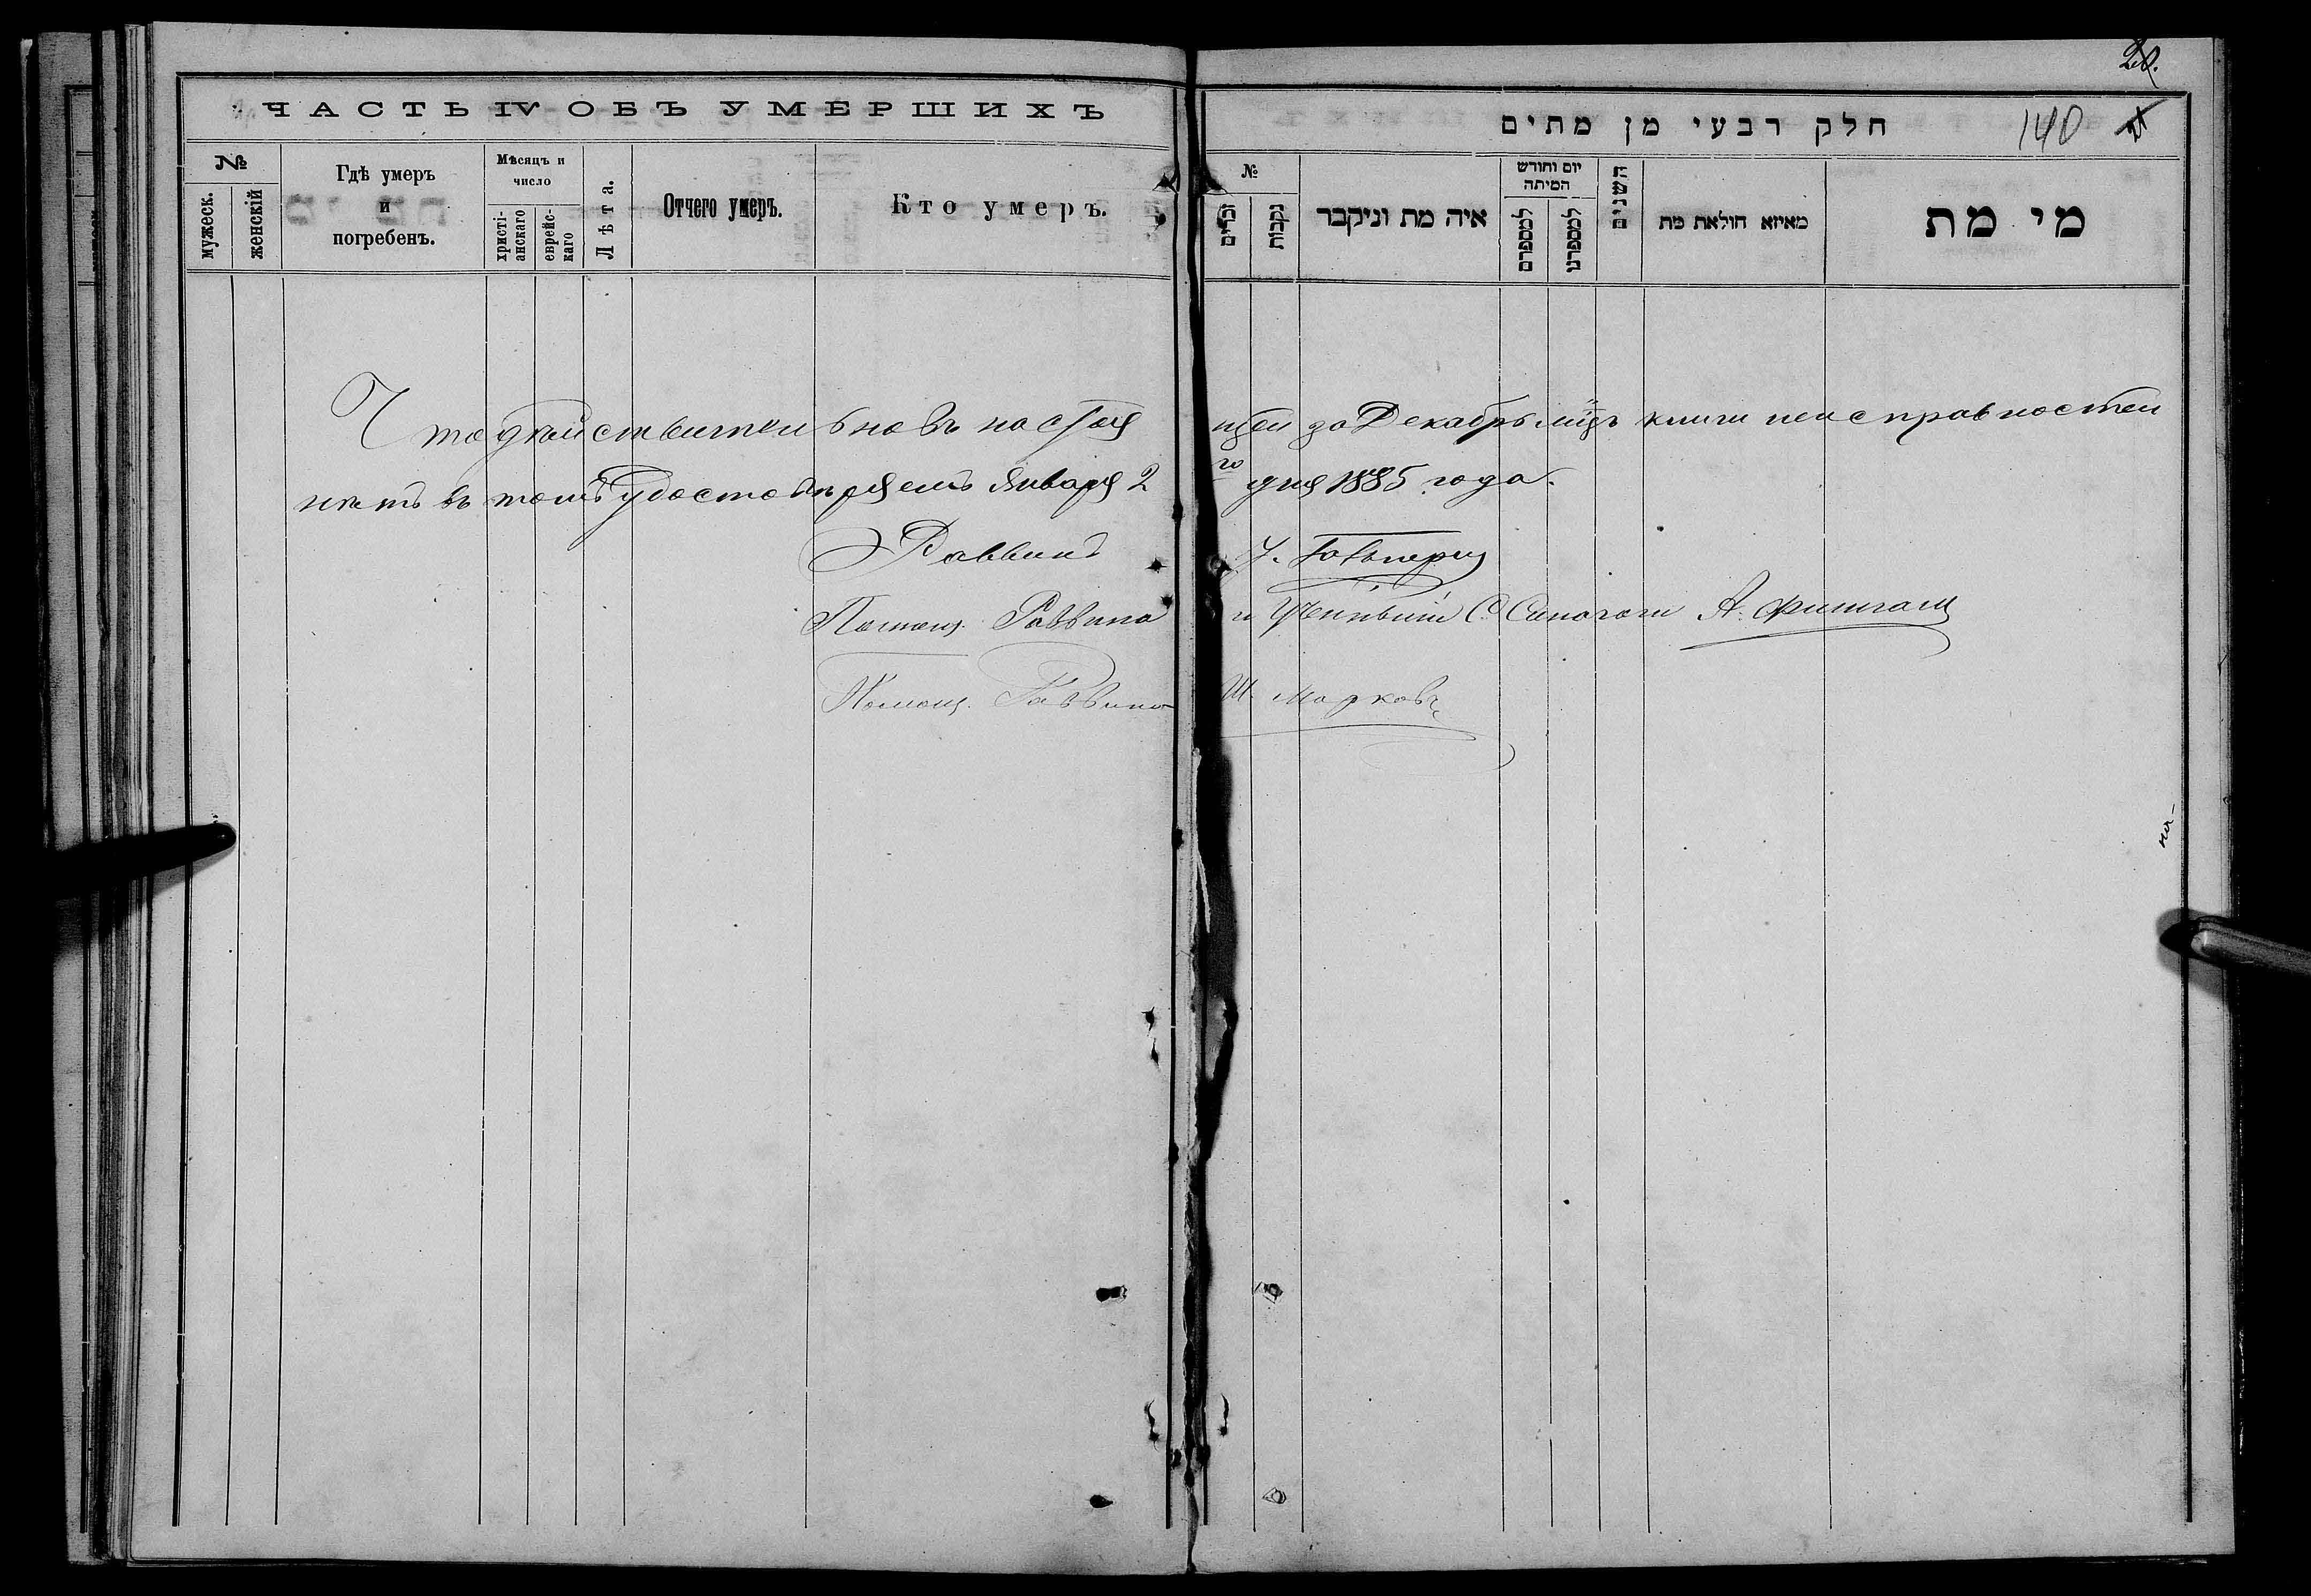 ЧАСТЬ IV ОБЪ УМЕРШИХЪ
№
мужеск.
женскій
Гдѣ умеръ
и
погребенъ.
Мѣсяцъ и
число
христі-
анскаго
еврейс-
каго
Лѣта.
Отчего умеръ.
Кто умеръ.
חלק רבעי מן מתים
140
№
זכרים
נקבות
איה מת וניקבר
יום וחורש
המיתה
למספרם
למספרנו
השנים
מאיזא חולאת מת
מי מת
Что дѣйствительно въ настоящей за Декабрь мцъ книги неисправностей
нѣтъ въ томъ удостовѣряемъ Января 2го дня 1885 года.
Раввинъ
Помощ. Раввина и Ученный С. Синагоги А.
Помощ. Раввина Ш. Марковъ